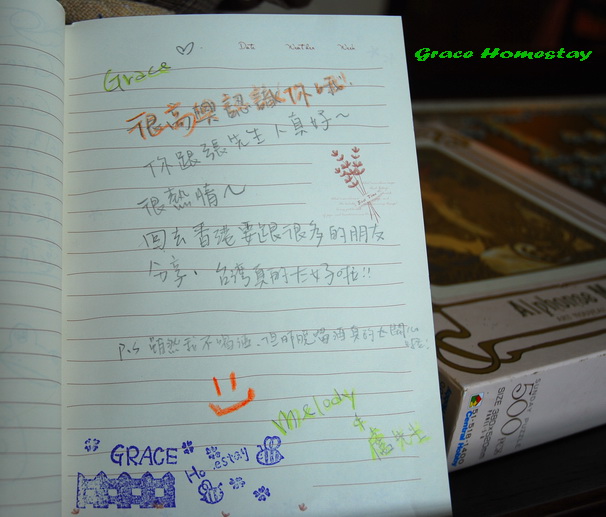 Grace Homestay
Date Weather Week
Grace
很高興認識你喔!
你跟張先生人真好~
很熱情~
回去香港要跟很多的朋友
分享,台灣真的太好啦!!
P.S 雖然我不喝酒,但昨晚喝酒真的太
Melody
&
先生
GRACE
Ho estay
Alphonse M
ART NOUVEAU
500
PCS